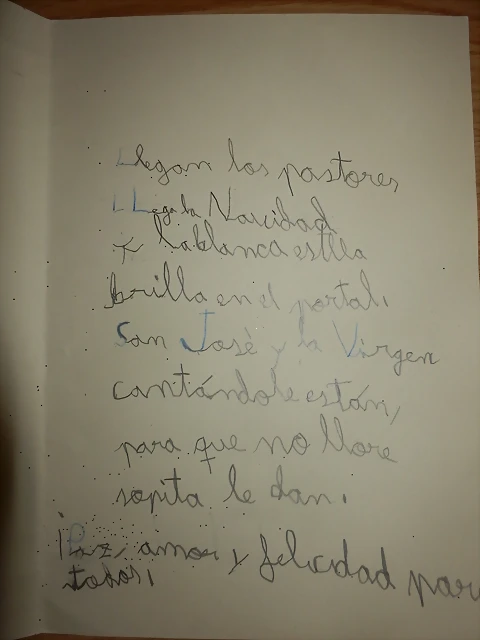 Llegan los pastores
LLega la Navidad
y la blanca estlla
brilla en el portal.
San José y la Virgen
cantándole están,
para que no llore
sopita le dan.
¡Paz, amor y felicidad para
todos.